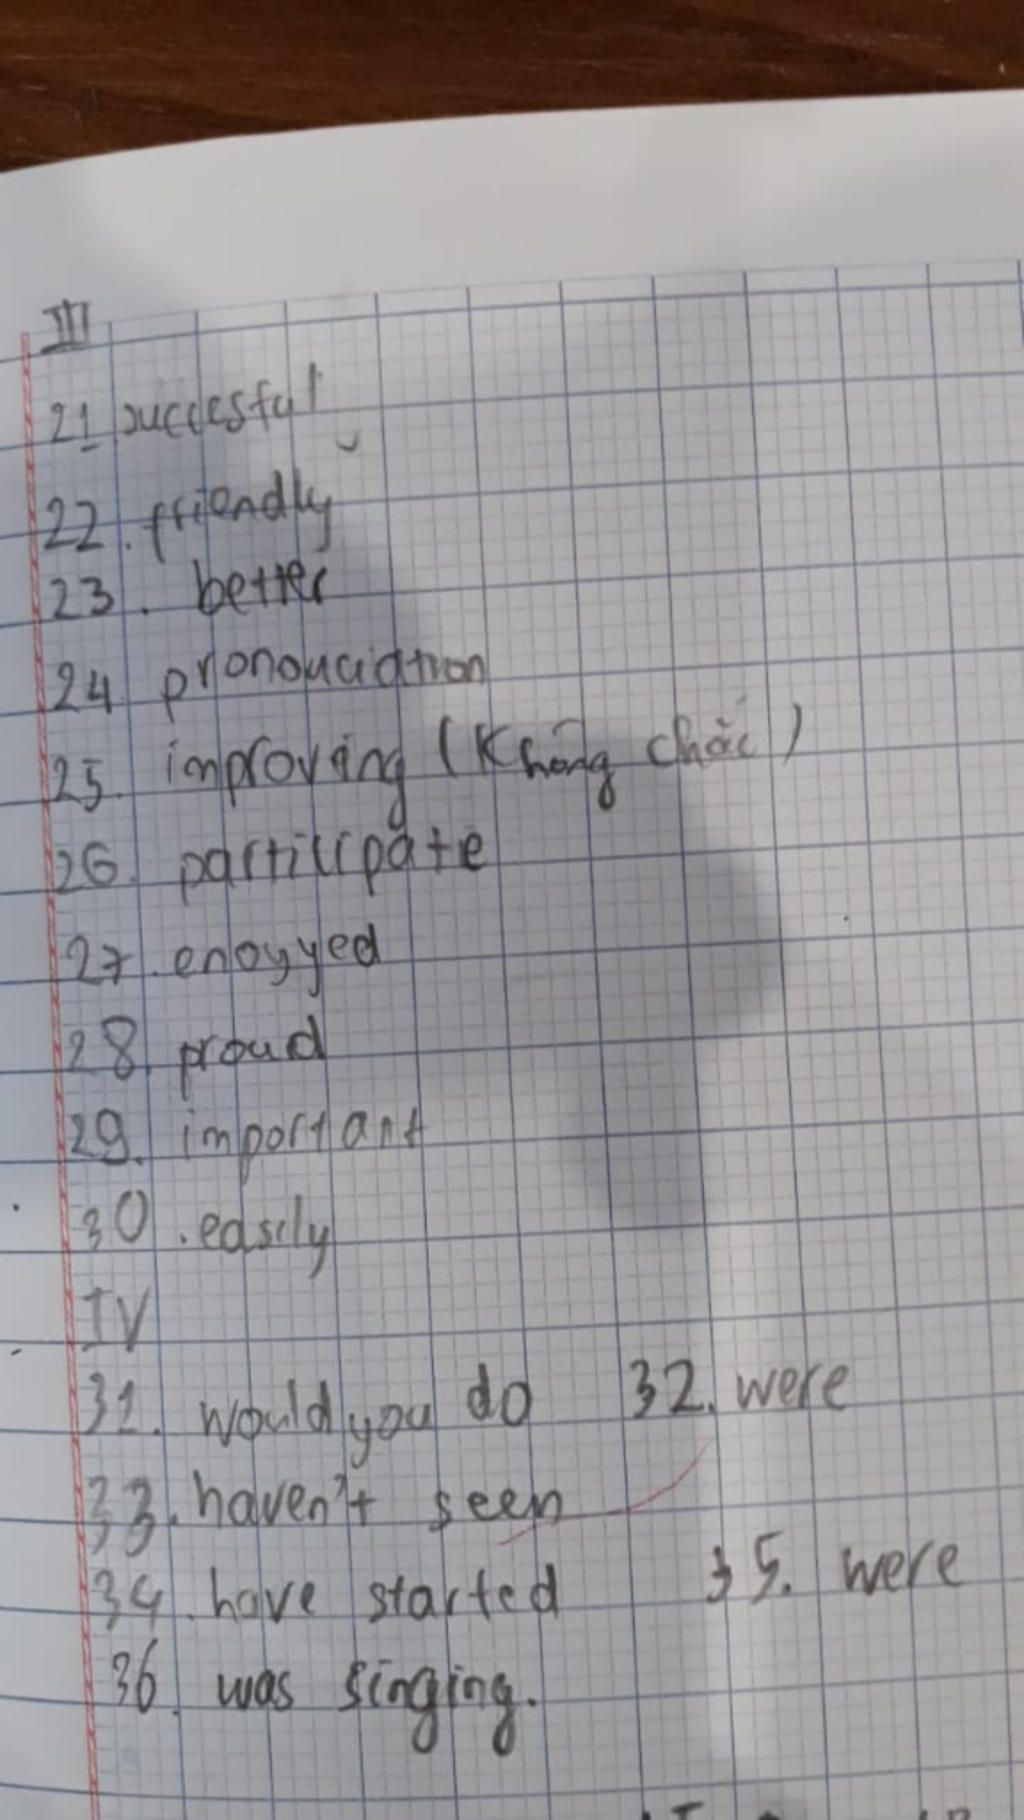 III
21 succesful
22. friendly
23. better
24 pronouciation
25. improving (không chắc)
26. participate
27. enoyyed
28. proud
29. important
30. easily
IV
31. would you do 32. were
33. haven't seen
34. have started 35. were
36. was singing.